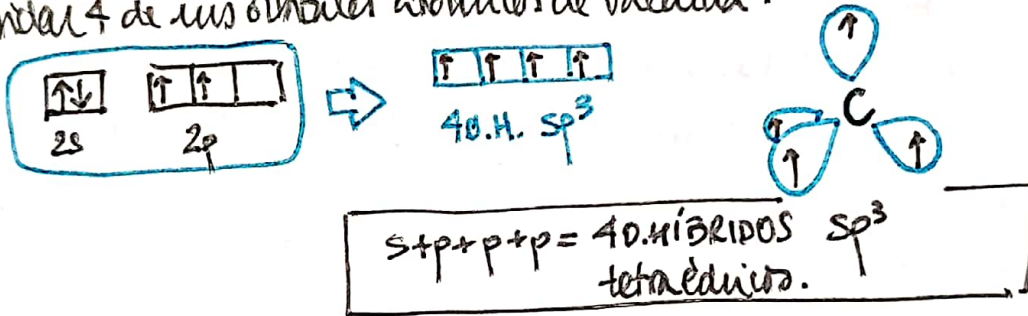 4 de sus orbitales atómicos de valencia.
↑↓ ↑ ↑ ↑ ↑ ↑ ↑
2s 2p
4 O.H. sp³
↑ C ↑ ↑ ↑
s+p+p+p = 4 O.HÍBRIDOS sp³
tetraédricos.